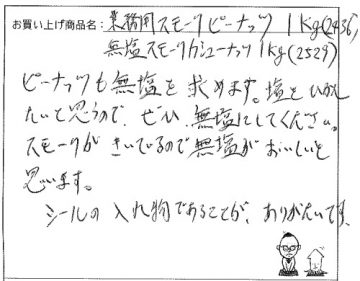 お買い上げ商品名：業務用スモークピーナッツ 1Kg(2436)
無塩スモークカシューナッツ 1kg(2529)
ピーナッツも無塩を求めます。塩をひかえ
たいと思うので、ぜひ、無塩にしてください。
スモークがきいているので無塩がおいしいと
思います。
シールの入れ物であることが、ありがたいです。